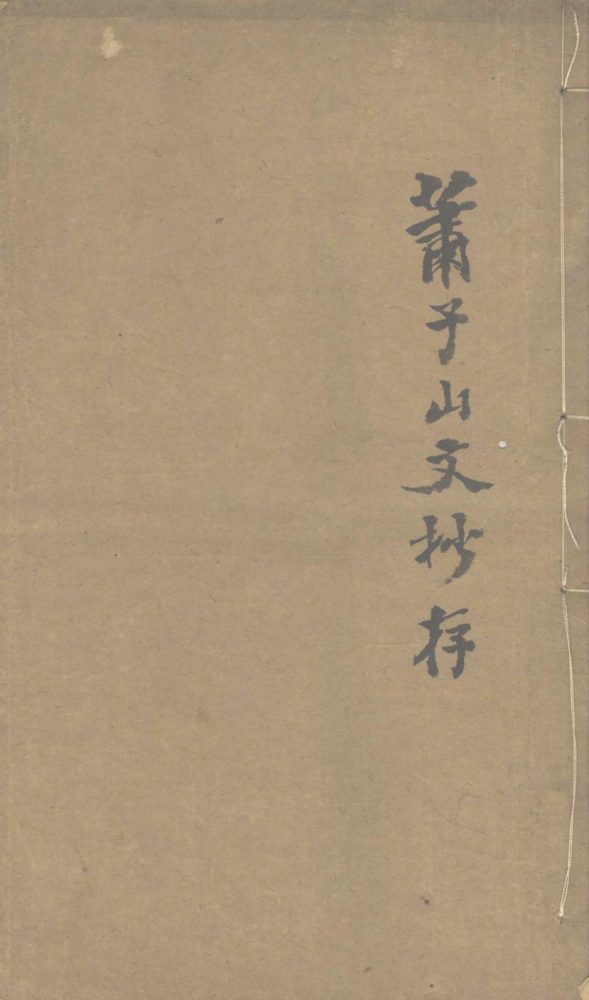 蕭子山文抄存